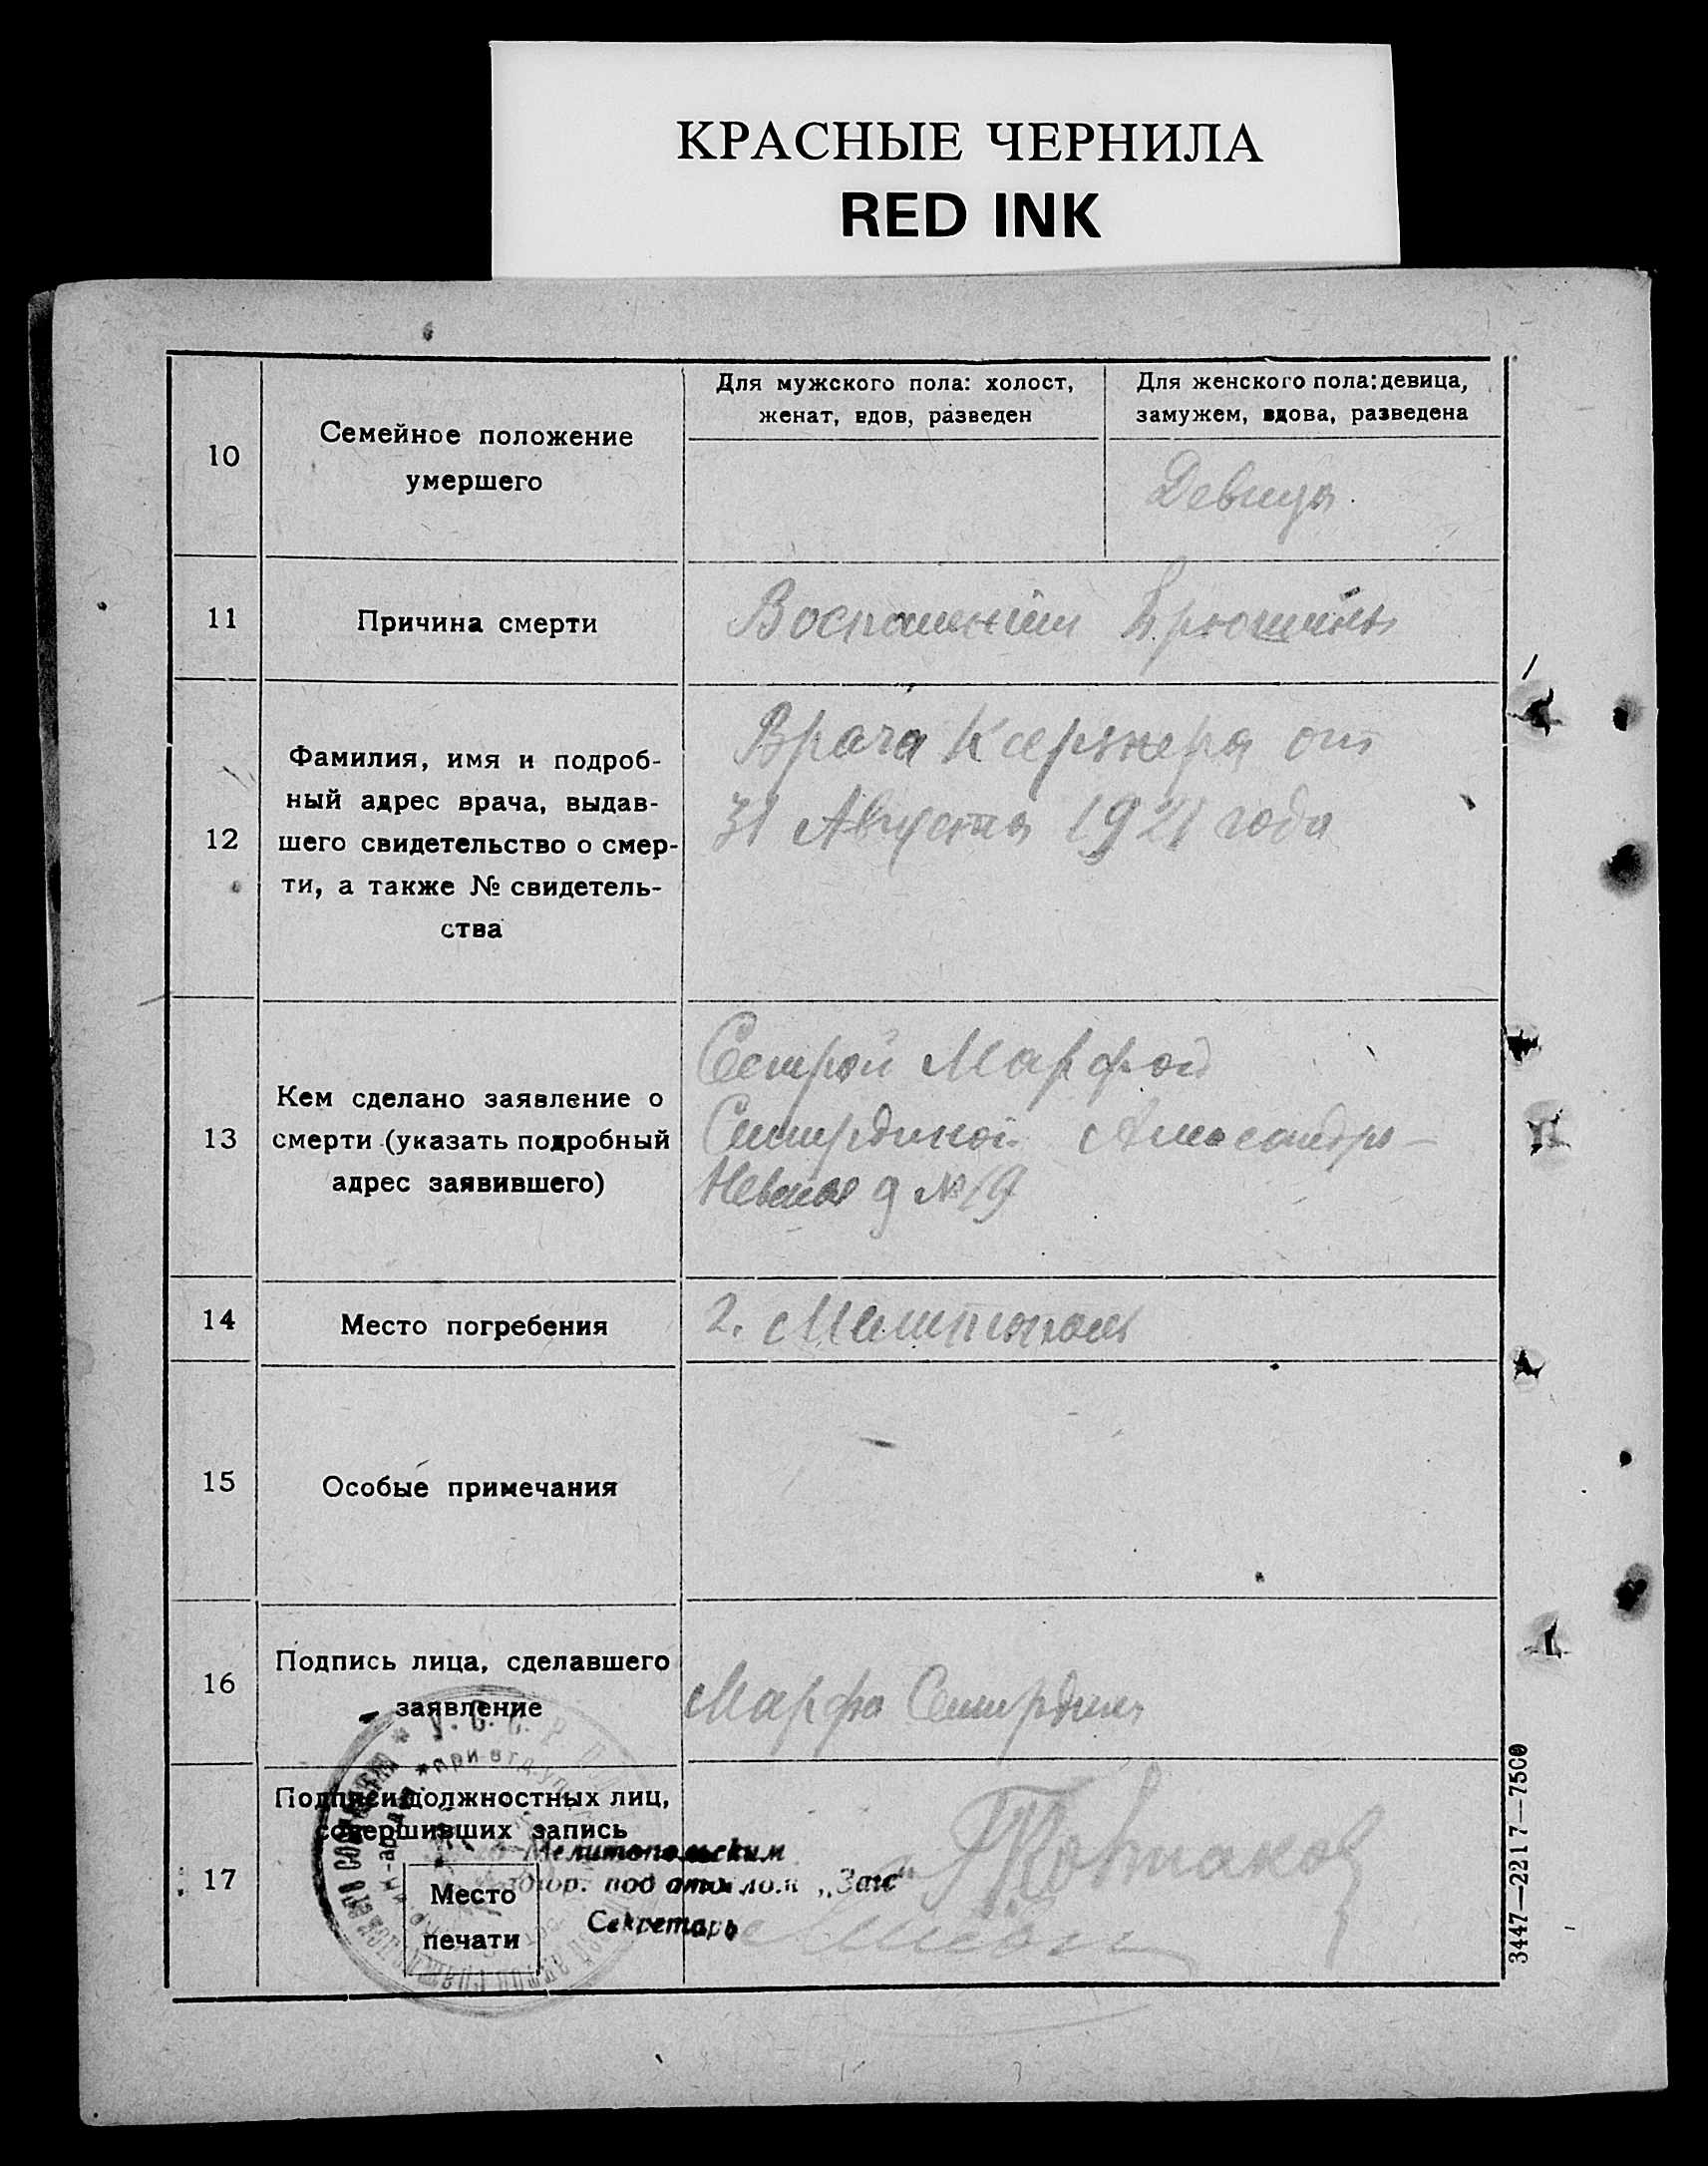 КРАСНЫЕ ЧЕРНИЛА
RED INK
10
Семейное положение
умершего
Для мужского пола: холост,
женат, вдов, разведен
Для женского пола: девица,
замужем, вдова, разведена
Девица
11
Причина смерти
Воспаление брюшины
12
Фамилия, имя и подроб-
ный адрес врача, выдав-
шего свидетельство о смер-
ти, а также № свидетель-
ства
Врача от
31 Августа 1921 года
13
Кем сделано заявление о
смерти (указать подробный
адрес заявившего)
Сестрой Марфой
Александро-
Невская д №19
14
Место погребения
г. Мелитополь
15
Особые примечания
16
Подпись лица, сделавшего
заявление
Марфа
17
Подписи должностных лиц,
совершивших запись
Место
печати
У. С. С. Р.
при отд. уп
Мелитопольским
под отделом „Загс“
Секретарь
3447—2217—7500